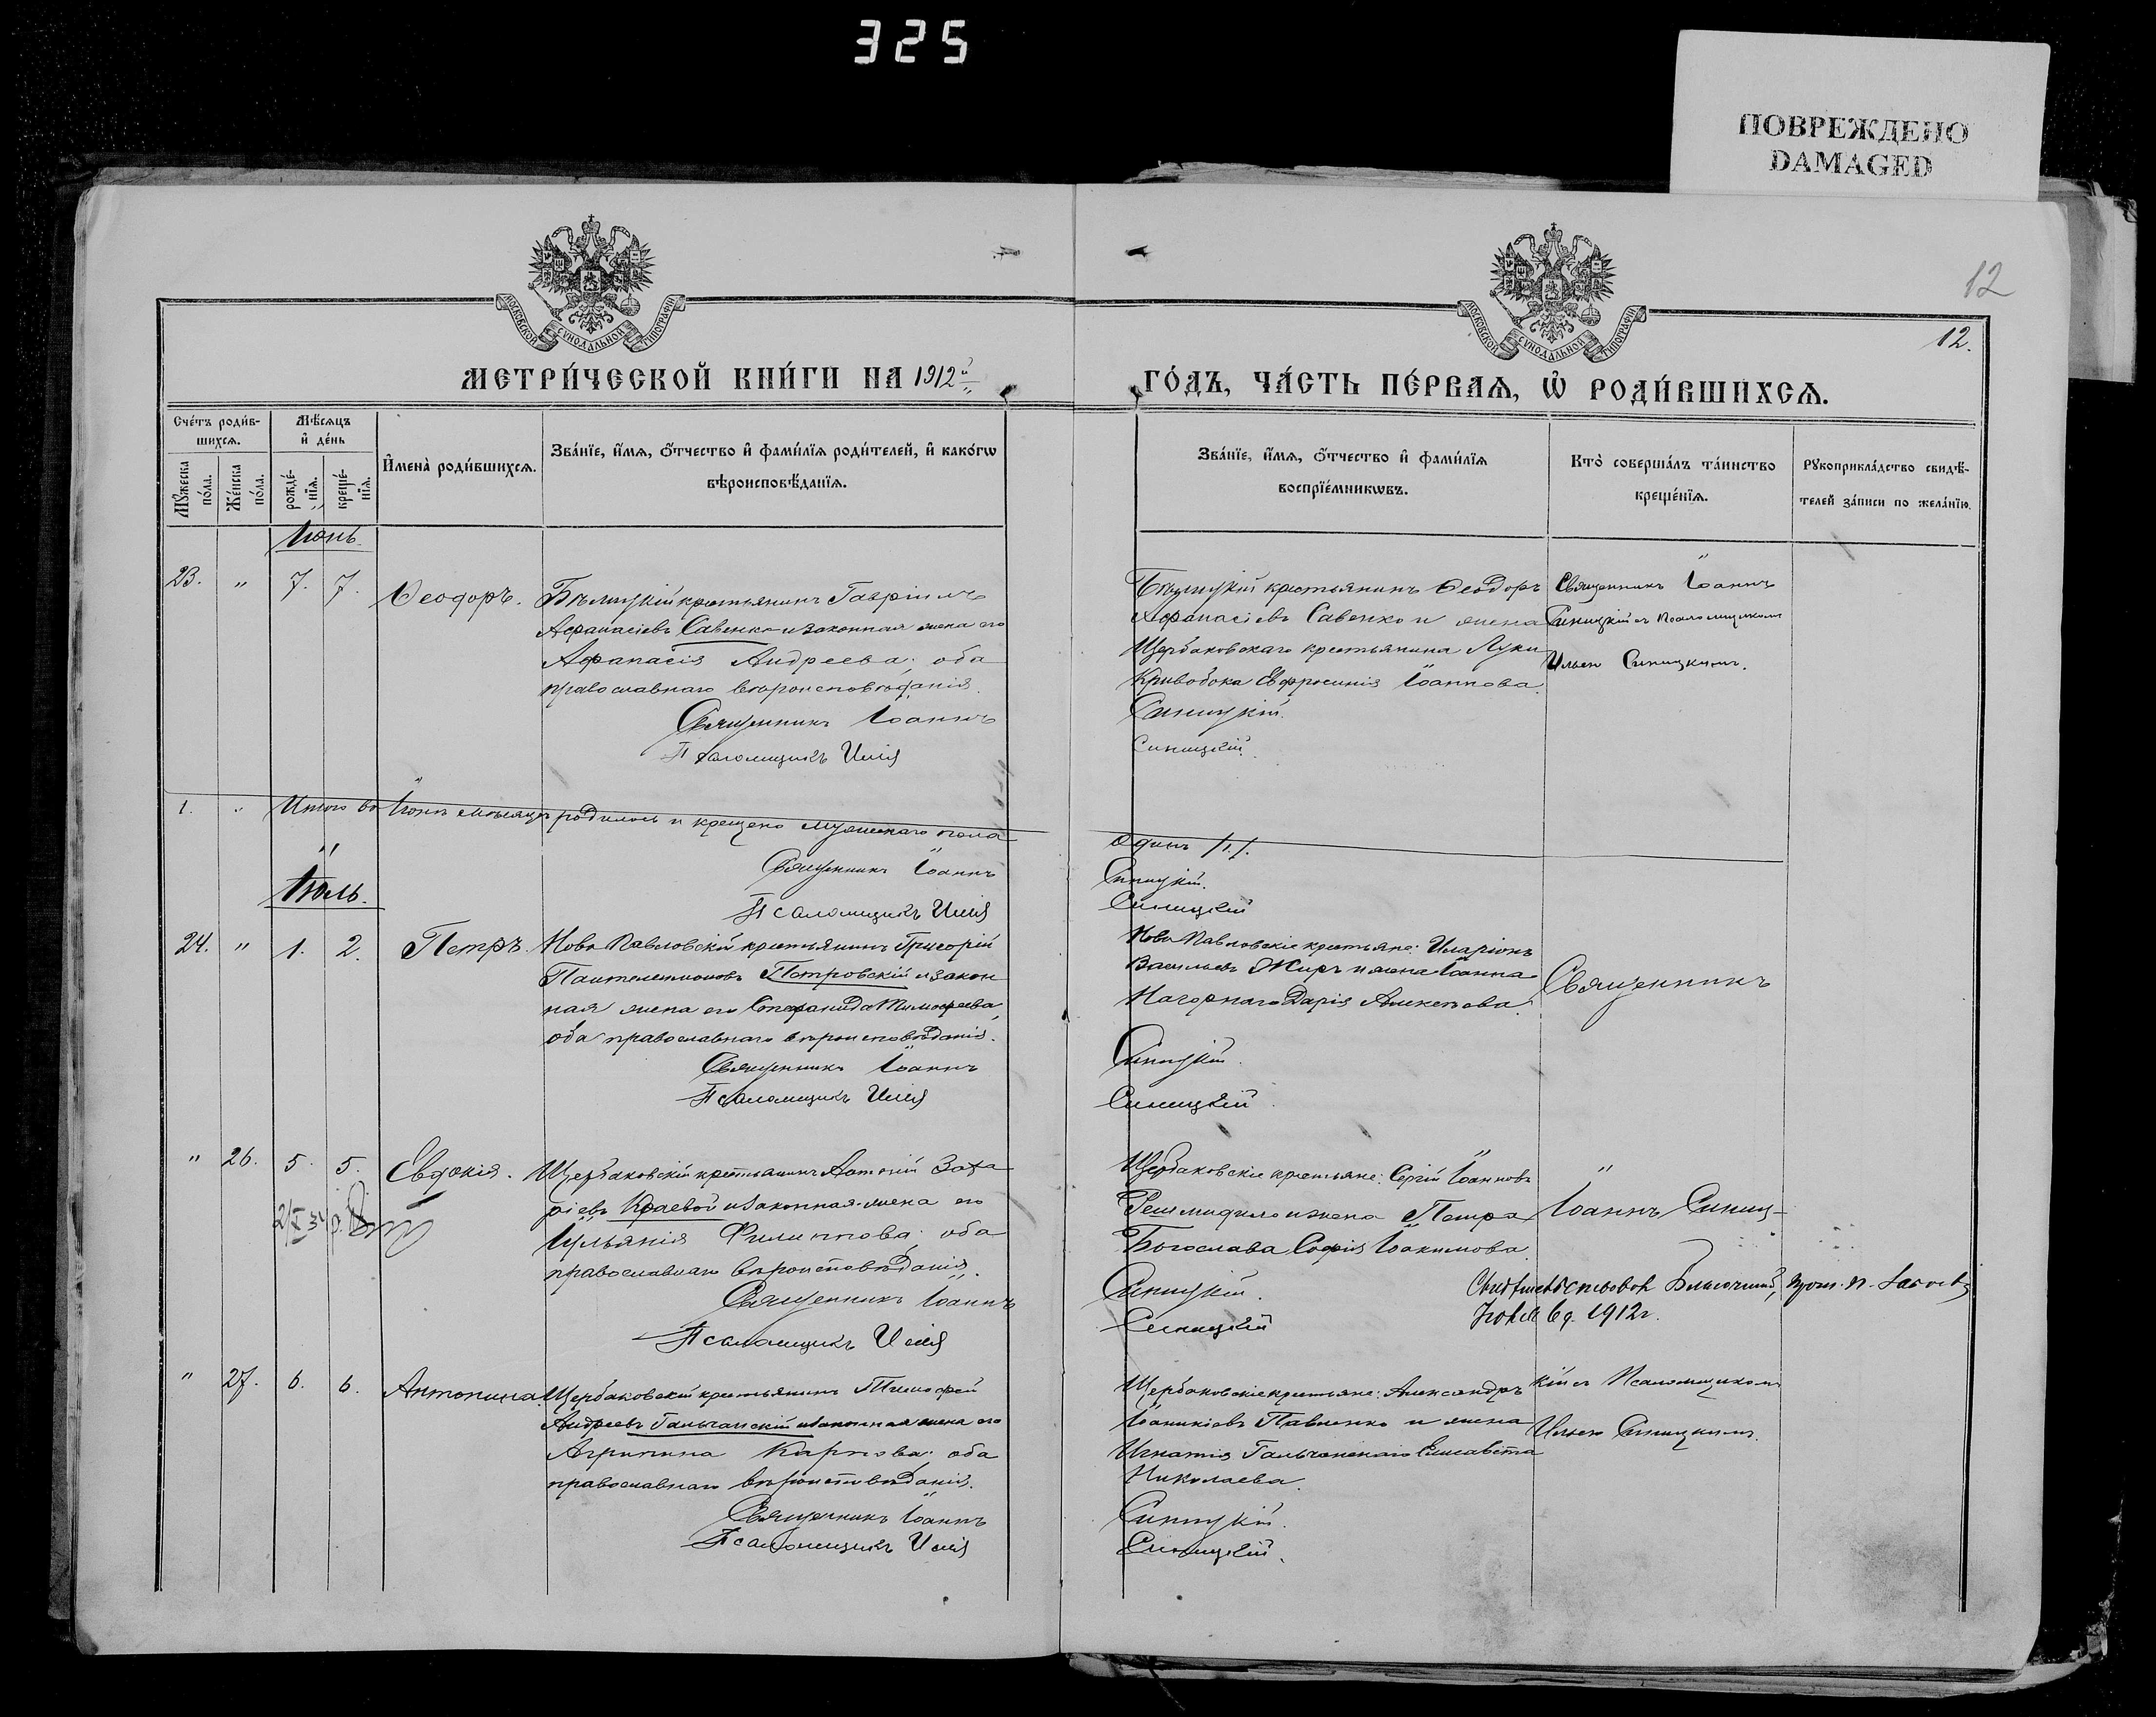 325
ПОВРЕЖДЕНО
DAMAGED
12
12.
МОСКОВСКОЙ СѴНОДАЛЬНОЙ ТИПОГРАФІИ
МОСКОВСКОЙ СѴНОДАЛЬНОЙ ТИПОГРАФІИ
МЕТРИ́ЧЕСКОЙ КНИ́ГИ НА 1912й
ГО́ДЪ, ЧА́СТЬ ПЕ́РВАѦ, Ѡ҆ РОДИ́ВШИХСѦ.
Сче́тъ роди́в-
шихсѧ.
Мѣ́сѧцъ
и҆ де́нь
Мꙋ́жеска по́ла.
Же́нска по́ла.
рожде́-нїѧ.
креще́-нїѧ.
И҆мена̀ роди́вшихсѧ.
Зва́нїе, и҆́мѧ, ѻ҆́тчество и҆ фами́лїѧ роди́телей, и҆ како́гѡ
вѣроисповѣ́данїѧ.
Зва́нїе, и҆́мѧ, ѻ҆́тчество и҆ фами́лїѧ
воспрїе́мникѡвъ.
Кто̀ соверша́лъ та́инство
креще́нїѧ.
Рꙋкоприкла́дство свидѣ́-
телей за́писи по жела́нїю.
Іюнь.
23. " 7. 7. Ѳеодоръ.
Бѣлицкій крестьянинъ Гавріилъ
Аѳанасіевъ Савенко и законная жена его
Андреева; оба
православнаго вѣроисповѣданія.
Священникъ Іоаннъ
Псаломщикъ Илія
Бѣлицкій крестьянинъ Ѳеодоръ
Аѳанасіевъ Савенко и жена
Щербаковскаго крестьянина Луки
Кривобока Евфросинія Іоаннова.
Синицкій.
Синицкій.
Священникъ Іоаннъ
Синицкій съ Псаломщикомъ
Ильею Синицкимъ.
1. " Итого въ Іюнѣ мѣсяцѣ родилось и крещено мужескаго пола
одинъ /1./.
Священникъ Іоаннъ
Синицкій.
Псаломщикъ Илія
Синицкій
Іюль.
24. " 1. 2. Петръ.
Ново Павловскій крестьянинъ Григорій
Пантелеимоновъ Петровскій и закон
ная жена его Стефанида Тимоѳеева,
оба православнаго вѣроисповѣданія.
Священникъ Іоаннъ
Псаломщикъ Илія
Ново Павловскіе крестьяне: Иларіонъ
Васильевъ Жиръ и жена Іоанна
Нагорнаго Дарія Алексѣева.
Синицкій.
Синицкій.
Священникъ
" 26. 5. 5. Евдокія.
Щербаковскій крестьянинъ Антоній Заха
ріевъ Краевой и законная жена его
Іуліанія Филиппова; оба
православнаго вѣроисповѣданія.
Священникъ Іоаннъ
Псаломщикъ Илія
Щербаковскіе крестьяне: Сергій Іоанновъ
и жена Петра
Богослава Софія Іоакимова.
Синицкій.
Синицкій
Іоаннъ Синиц-
1912г.
" 27. 6. 6. Антонина.
Щербаковскій крестьянинъ Тимоѳей
Андреевъ Гальчанскій и законная жена его
Агрипина Карпова; оба
православнаго вѣроисповѣданія.
Священникъ Іоаннъ
Псаломщикъ Илія
Щербаковскіе крестьяне: Александръ
Іоанникіевъ Павленко и жена
Игнатія Гальчанскаго Елисавета
Николаева.
Синицкій.
Синицкій.
кій съ Псаломщикомъ
Ильею Синицкимъ.